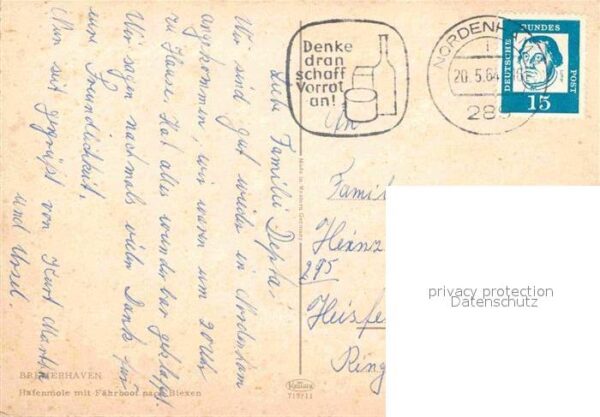 Liebe Familie Depta!
Wir sind gut wieder in Nordenham
angekommen, wir waren um 20 Uhr
zu Hause. Hat alles wunderbar geklappt.
Wir sagen nochmals vielen Dank für
eure Freundlichkeit.
Nun seit gegrüßt von Kurt Martha
und Ursel.
BREMERHAVEN
Hafenmole mit Fährboot nach Blexen
Denke
dran
schaff
Vorrat
an!
NORDENH
20.5.64
289
DEUTSCHE BUNDES POST
15
An
Famil
Heinz
295
Heisfe
Ring
Made in Western Germany
privacy protection
Datenschutz